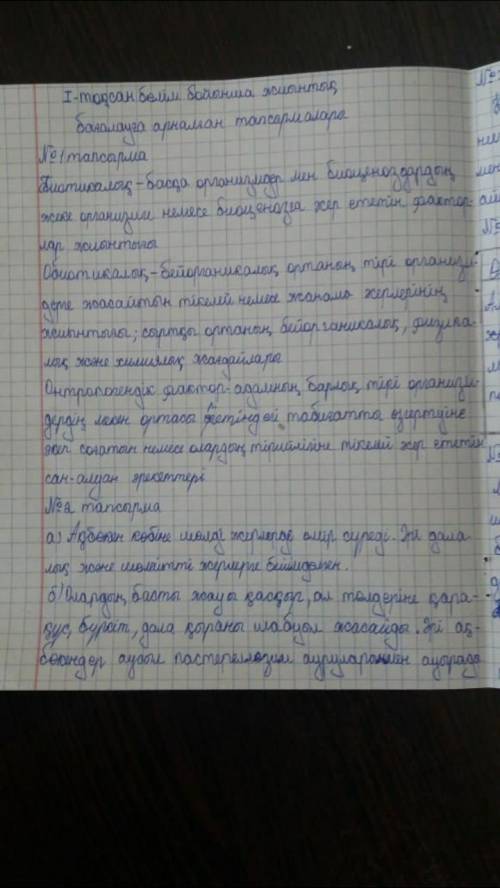 I-тоқсан бөлім бойынша жиынтық
бағалауға арналған тапсырмалары
№1 тапсырма
Биотикалық - басқа организмдер мен биоценоздардың
жеке организмге немесе биоценозға әсер ететін фактор-
лар жиынтығы
Обиотикалық - бейорганикалық ортаның тірі организм-
дерге жасайтын тікелей немесе жанама әсерлерінің
жиынтығы; сыртқы ортаның бейорганикалық, физика-
лық және химиялық жағдайлары
Онтропогендік фактор - адамның барлық тірі организм-
дердің мекен ортасы ретіндегі табиғатта өзгертуіне
әкеп соғатын немесе олардың тіршілігіне тікелей әсер ететін
сан-алуан әрекеттері
№2 тапсырма
а) Ақбөкен көбіне шөлді жерлерде өмір сүреді. Әрі дала
лық және шөлейтті жерлерге бейімделген.
б) Олардың басты жауы қасқыр, ал төлдеріне қара-
құс, бүркіт, дала қыраны шабуыл жасайды. Әрі ақ-
бөкендер аусыл пастереллезом ауруларымен ауырады